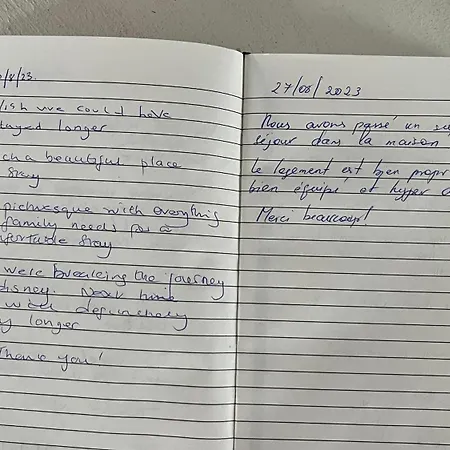 /8/23.
ish we could have
tayed longer
ch a beautiful place
Stay
picturesque with everything
family needs for a
mfortable stay
were breaking the journey
disney. Next time
will definately
y longer
Thank you!
27/08/2023
Nous avons passé un su
séjour dans la maison
Le logement est bien propr
bien équipé et hyper
Merci beaucoup!